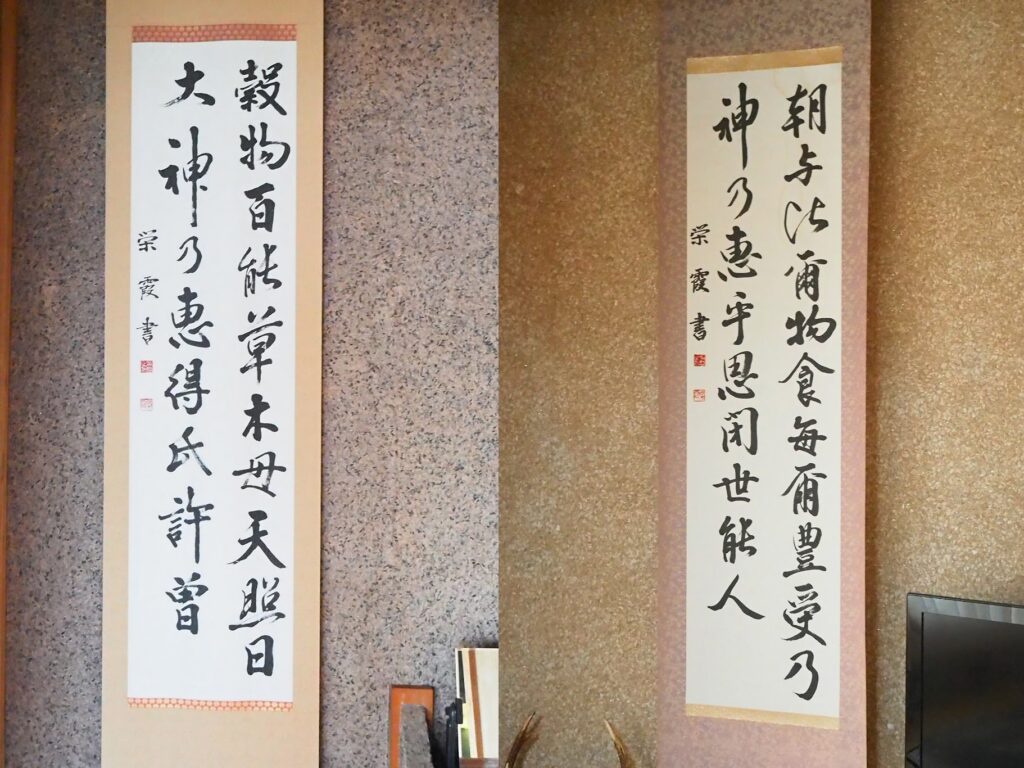 穀物百能草木母天照日
大神乃恵得氐許曽
栄霞書
朝与比爾物食毎爾豊受乃
神乃恵乎思閇世能人
栄霞書